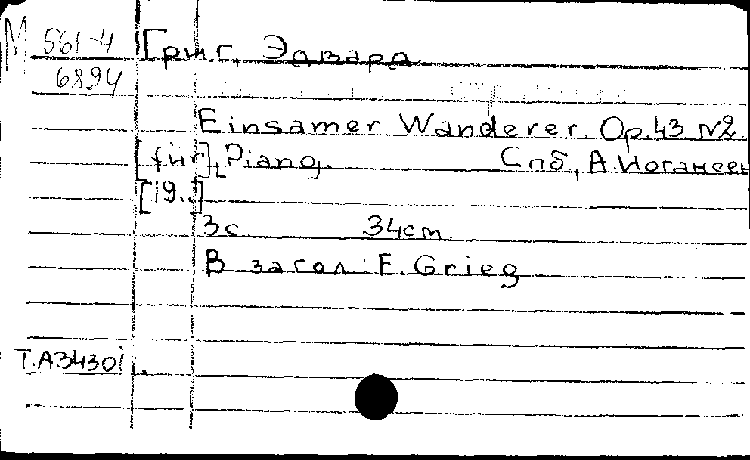 М 561-4 Григ, Эдвард
6894
Einsamer Wanderer. Op.43 №2.
[für], Piano. Спб, А. Иогансен
[19..]
3с 34см
В загол: E. Grieg
T.A3430i